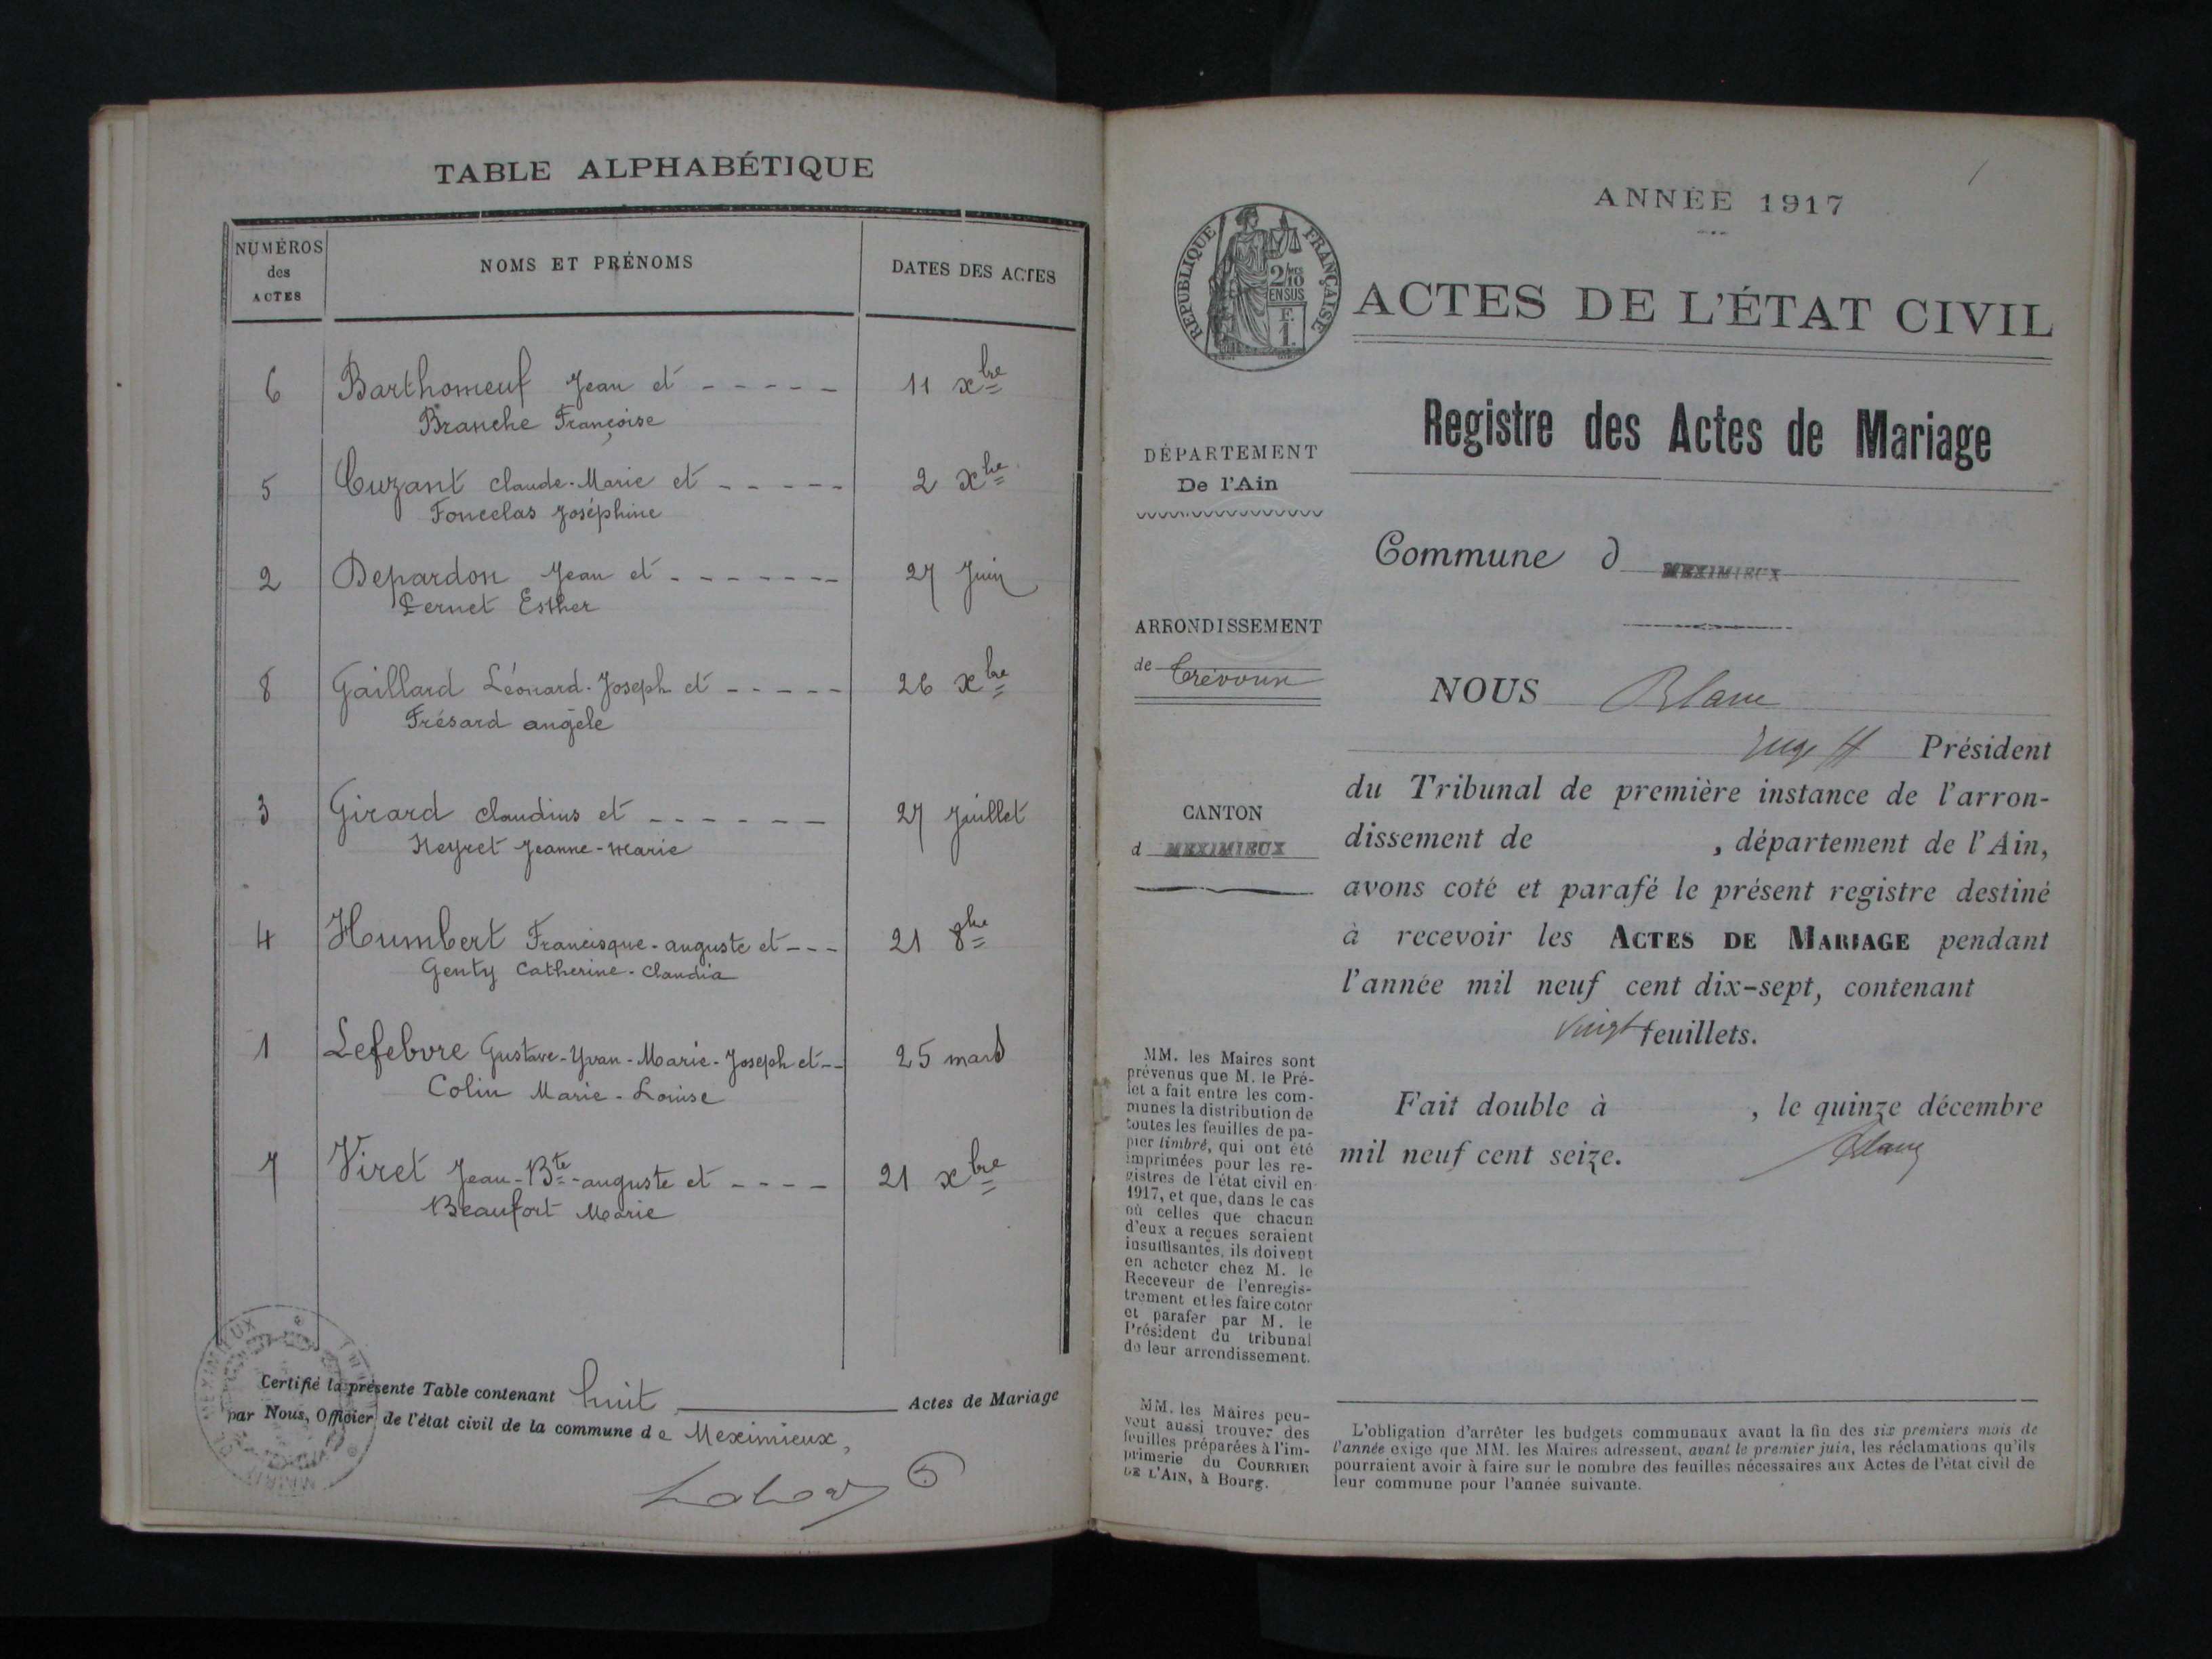 TABLE ALPHABÉTIQUE
NUMÉROS
des
ACTES
NOMS ET PRÉNOMS
DATES DES ACTES
6 Barthomeuf Jean et - - - - - 11 xbre
Branche Françoise
5 Cuzant Claude-Marie et - - - - - 2 xbre
Fonceclas Joséphine
2 Depardon Jean et - - - - - - - 27 Juin
Pernet Esther
8 Gaillard Léonard-Joseph et - - - - - 26 xbre
Frésard angèle
3 Girard Claudius et - - - - - - 27 Juillet
Heyret Jeanne-Marie
4 Humbert Francisque-auguste et - - - 21 8bre
Genty Catherine-Claudia
1 Lefebvre Gustave-Yvan-Marie-Joseph et - - 25 mars
Colin Marie-Louise
7 Viret Jean-Bte-auguste et - - - - 21 xbre
Beaufort Marie
Certifié la présente Table contenant huit Actes de Mariage
par Nous, Officier de l'état civil de la commune de Meximieux,
1
ANNÉE 1917
RÉPUBLIQUE FRANÇAISE
2/10
EN SUS
F.
1.
ACTES DE L'ÉTAT CIVIL
Registre des Actes de Mariage
DÉPARTEMENT
De l'Ain
Commune d MEXIMIEUX
ARRONDISSEMENT
de Trévoux
NOUS Blanc
Juge ff Président
du Tribunal de première instance de l'arron-
dissement de , département de l'Ain,
avons coté et parafé le présent registre destiné
à recevoir les ACTES DE MARIAGE pendant
l'année mil neuf cent dix-sept, contenant
vingt feuillets.
Fait double à , le quinze décembre
mil neuf cent seize.
Blanc
CANTON
d MEXIMIEUX
MM. les Maires sont
prévenus que M. le Pré-
fet a fait entre les com-
munes la distribution de
toutes les feuilles de pa-
pier timbré, qui ont été
imprimées pour les re-
gistres de l'état civil en
1917, et que, dans le cas
où celles que chacun
d'eux a reçues seraient
insuffisantes, ils doivent
en acheter chez M. le
Receveur de l'enregis-
trement et les faire coter
et parafer par M. le
Président du tribunal
de leur arrondissement.
MM. les Maires peu-
vent aussi trouver des
feuilles préparées à l'im-
primerie du COURRIER
DE L'AIN, à Bourg.
L'obligation d'arrêter les budgets communaux avant la fin des six premiers mois de
l'année exige que MM. les Maires adressent, avant le premier juin, les réclamations qu'ils
pourraient avoir à faire sur le nombre des feuilles nécessaires aux Actes de l'état civil de
leur commune pour l'année suivante.